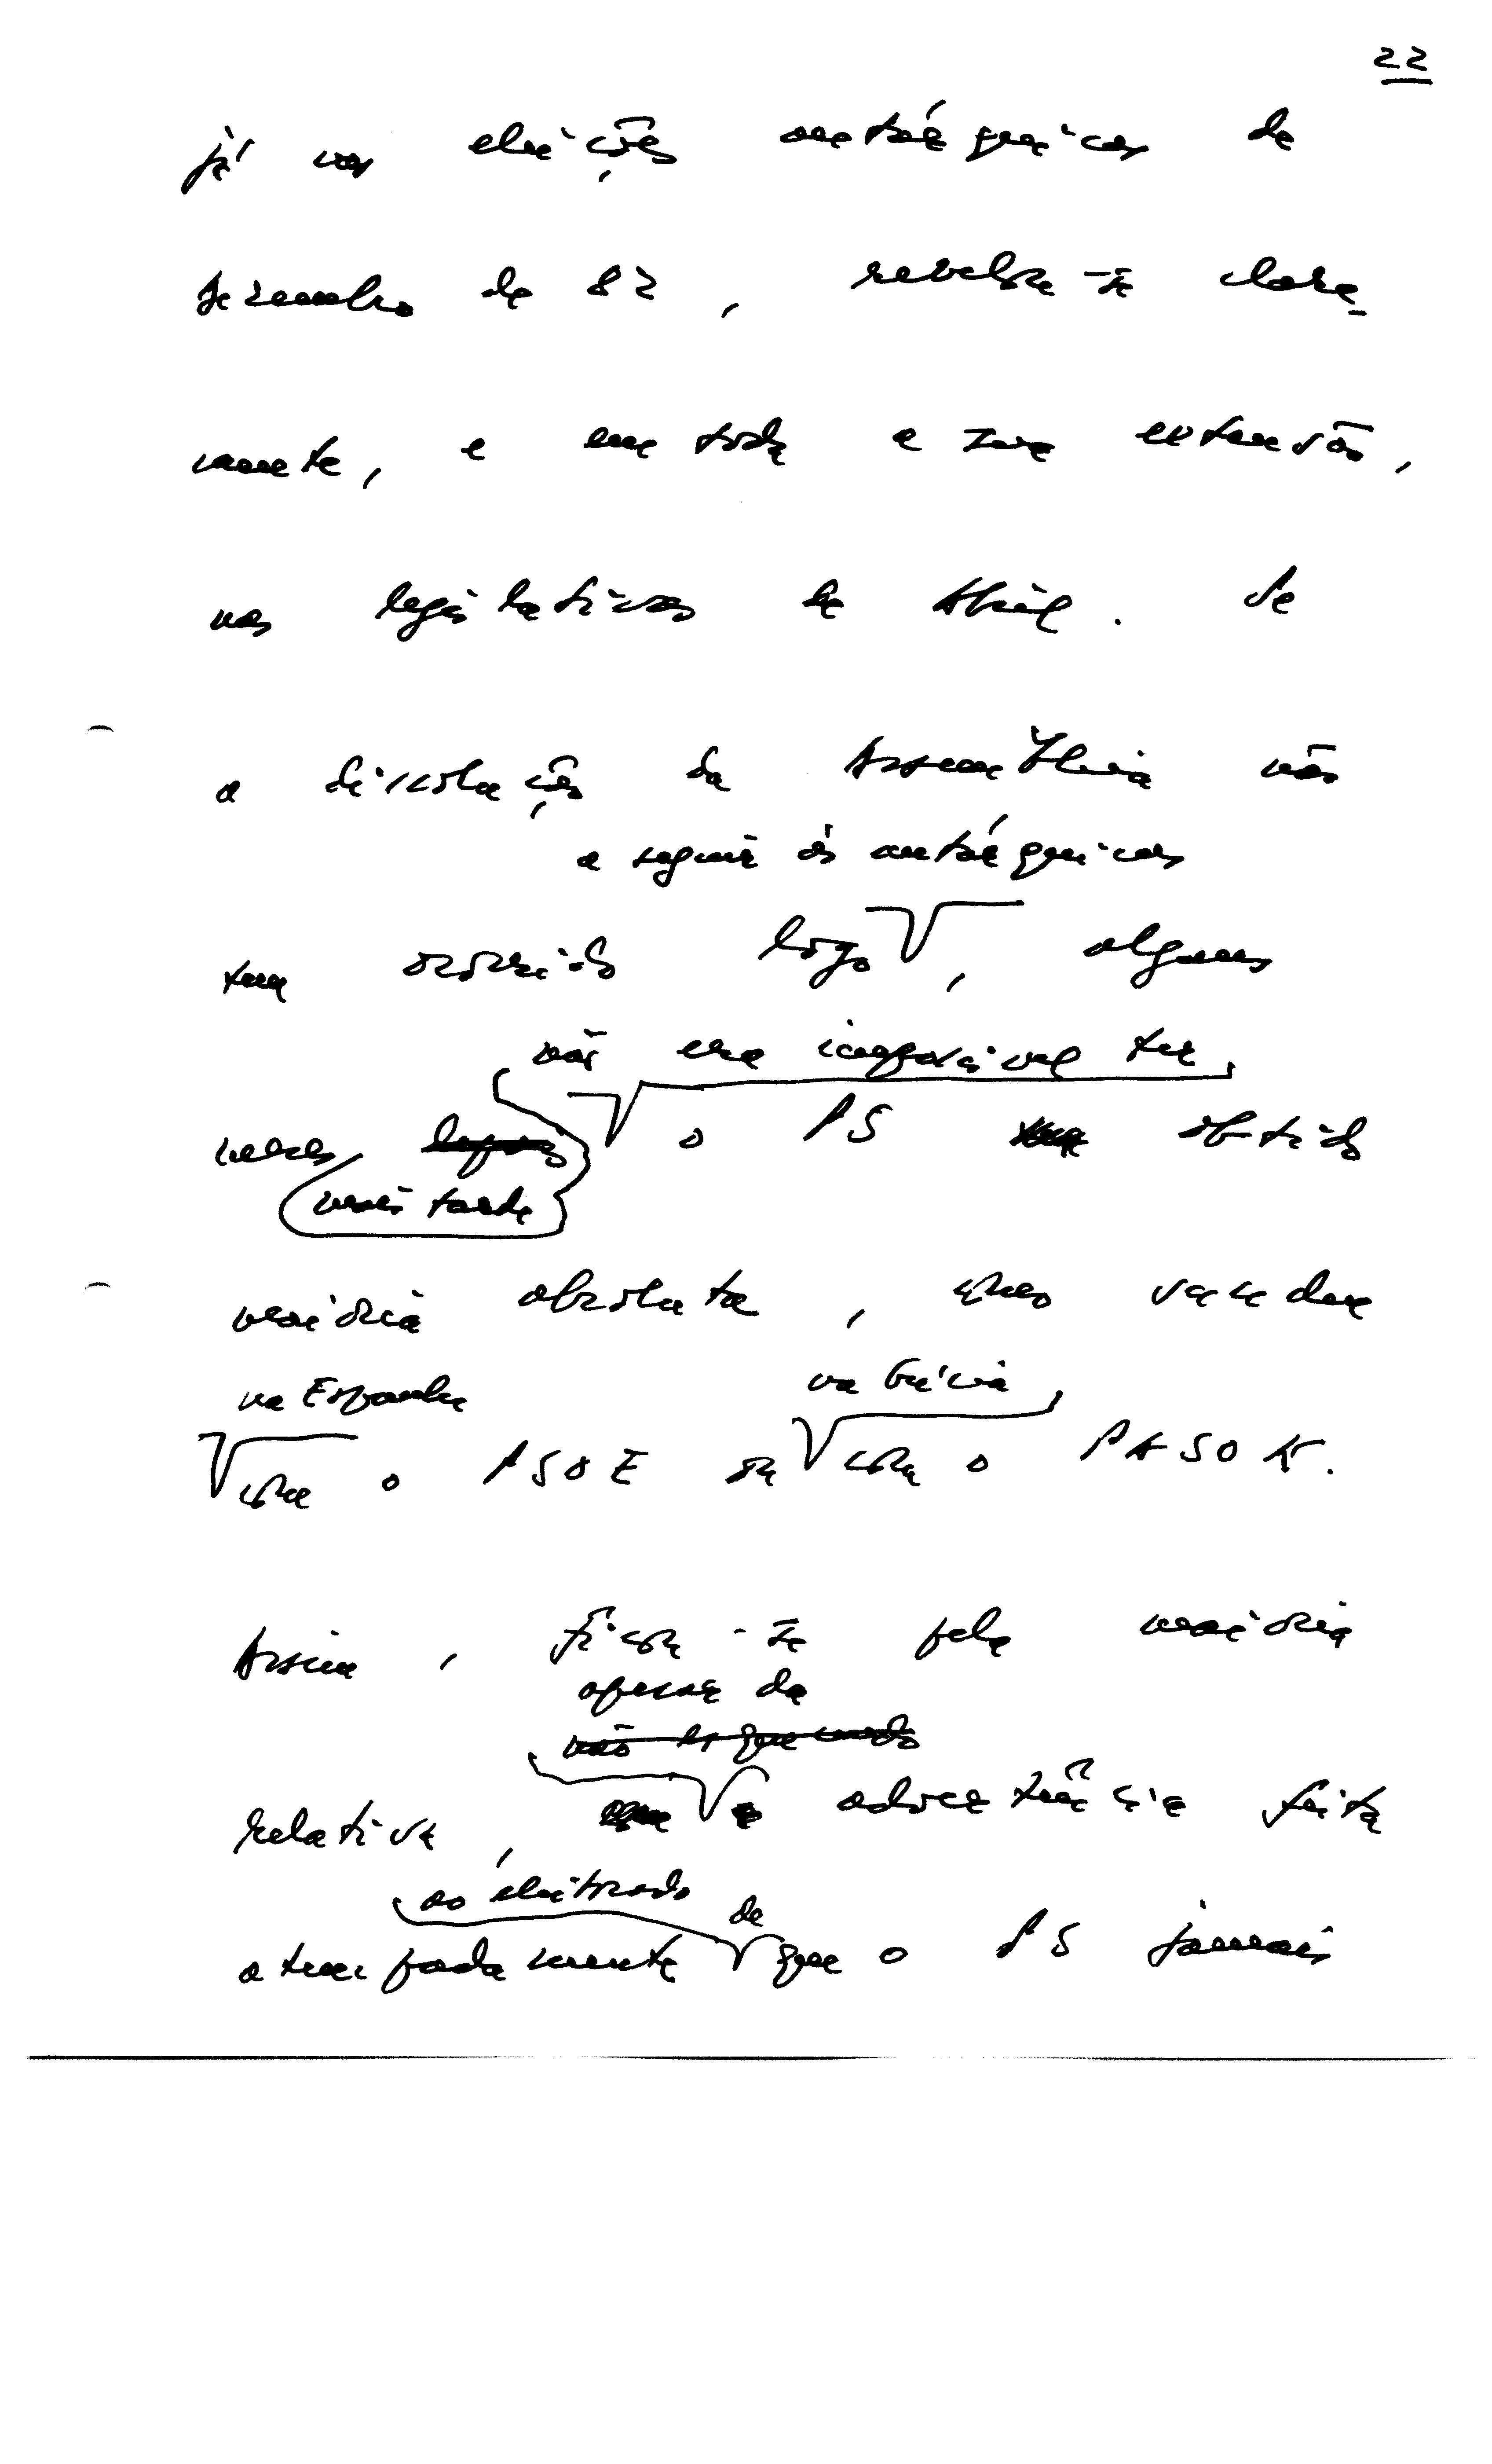 22
já nas eleições autárquicas de
dezembro de 82, revelou-se clara-
mente, e em toda a sua extensão,
nas legislativas de Abril. Se
a dissolução da Assembleia não
a seguir às autárquicas
tem ocorrido logo, alguns
não era impossível ter
meses logo o PS tem obtido
mais tarde
maioria absoluta, como sucedeu
na Espanha na Grécia,
com o PSOE ou com o PASOK.
Assim, ficou-se pela maioria
apesar da
não esquecendo
relativa, a advertência feita
ao eleitorado de
antecipadamente que o PS jamais